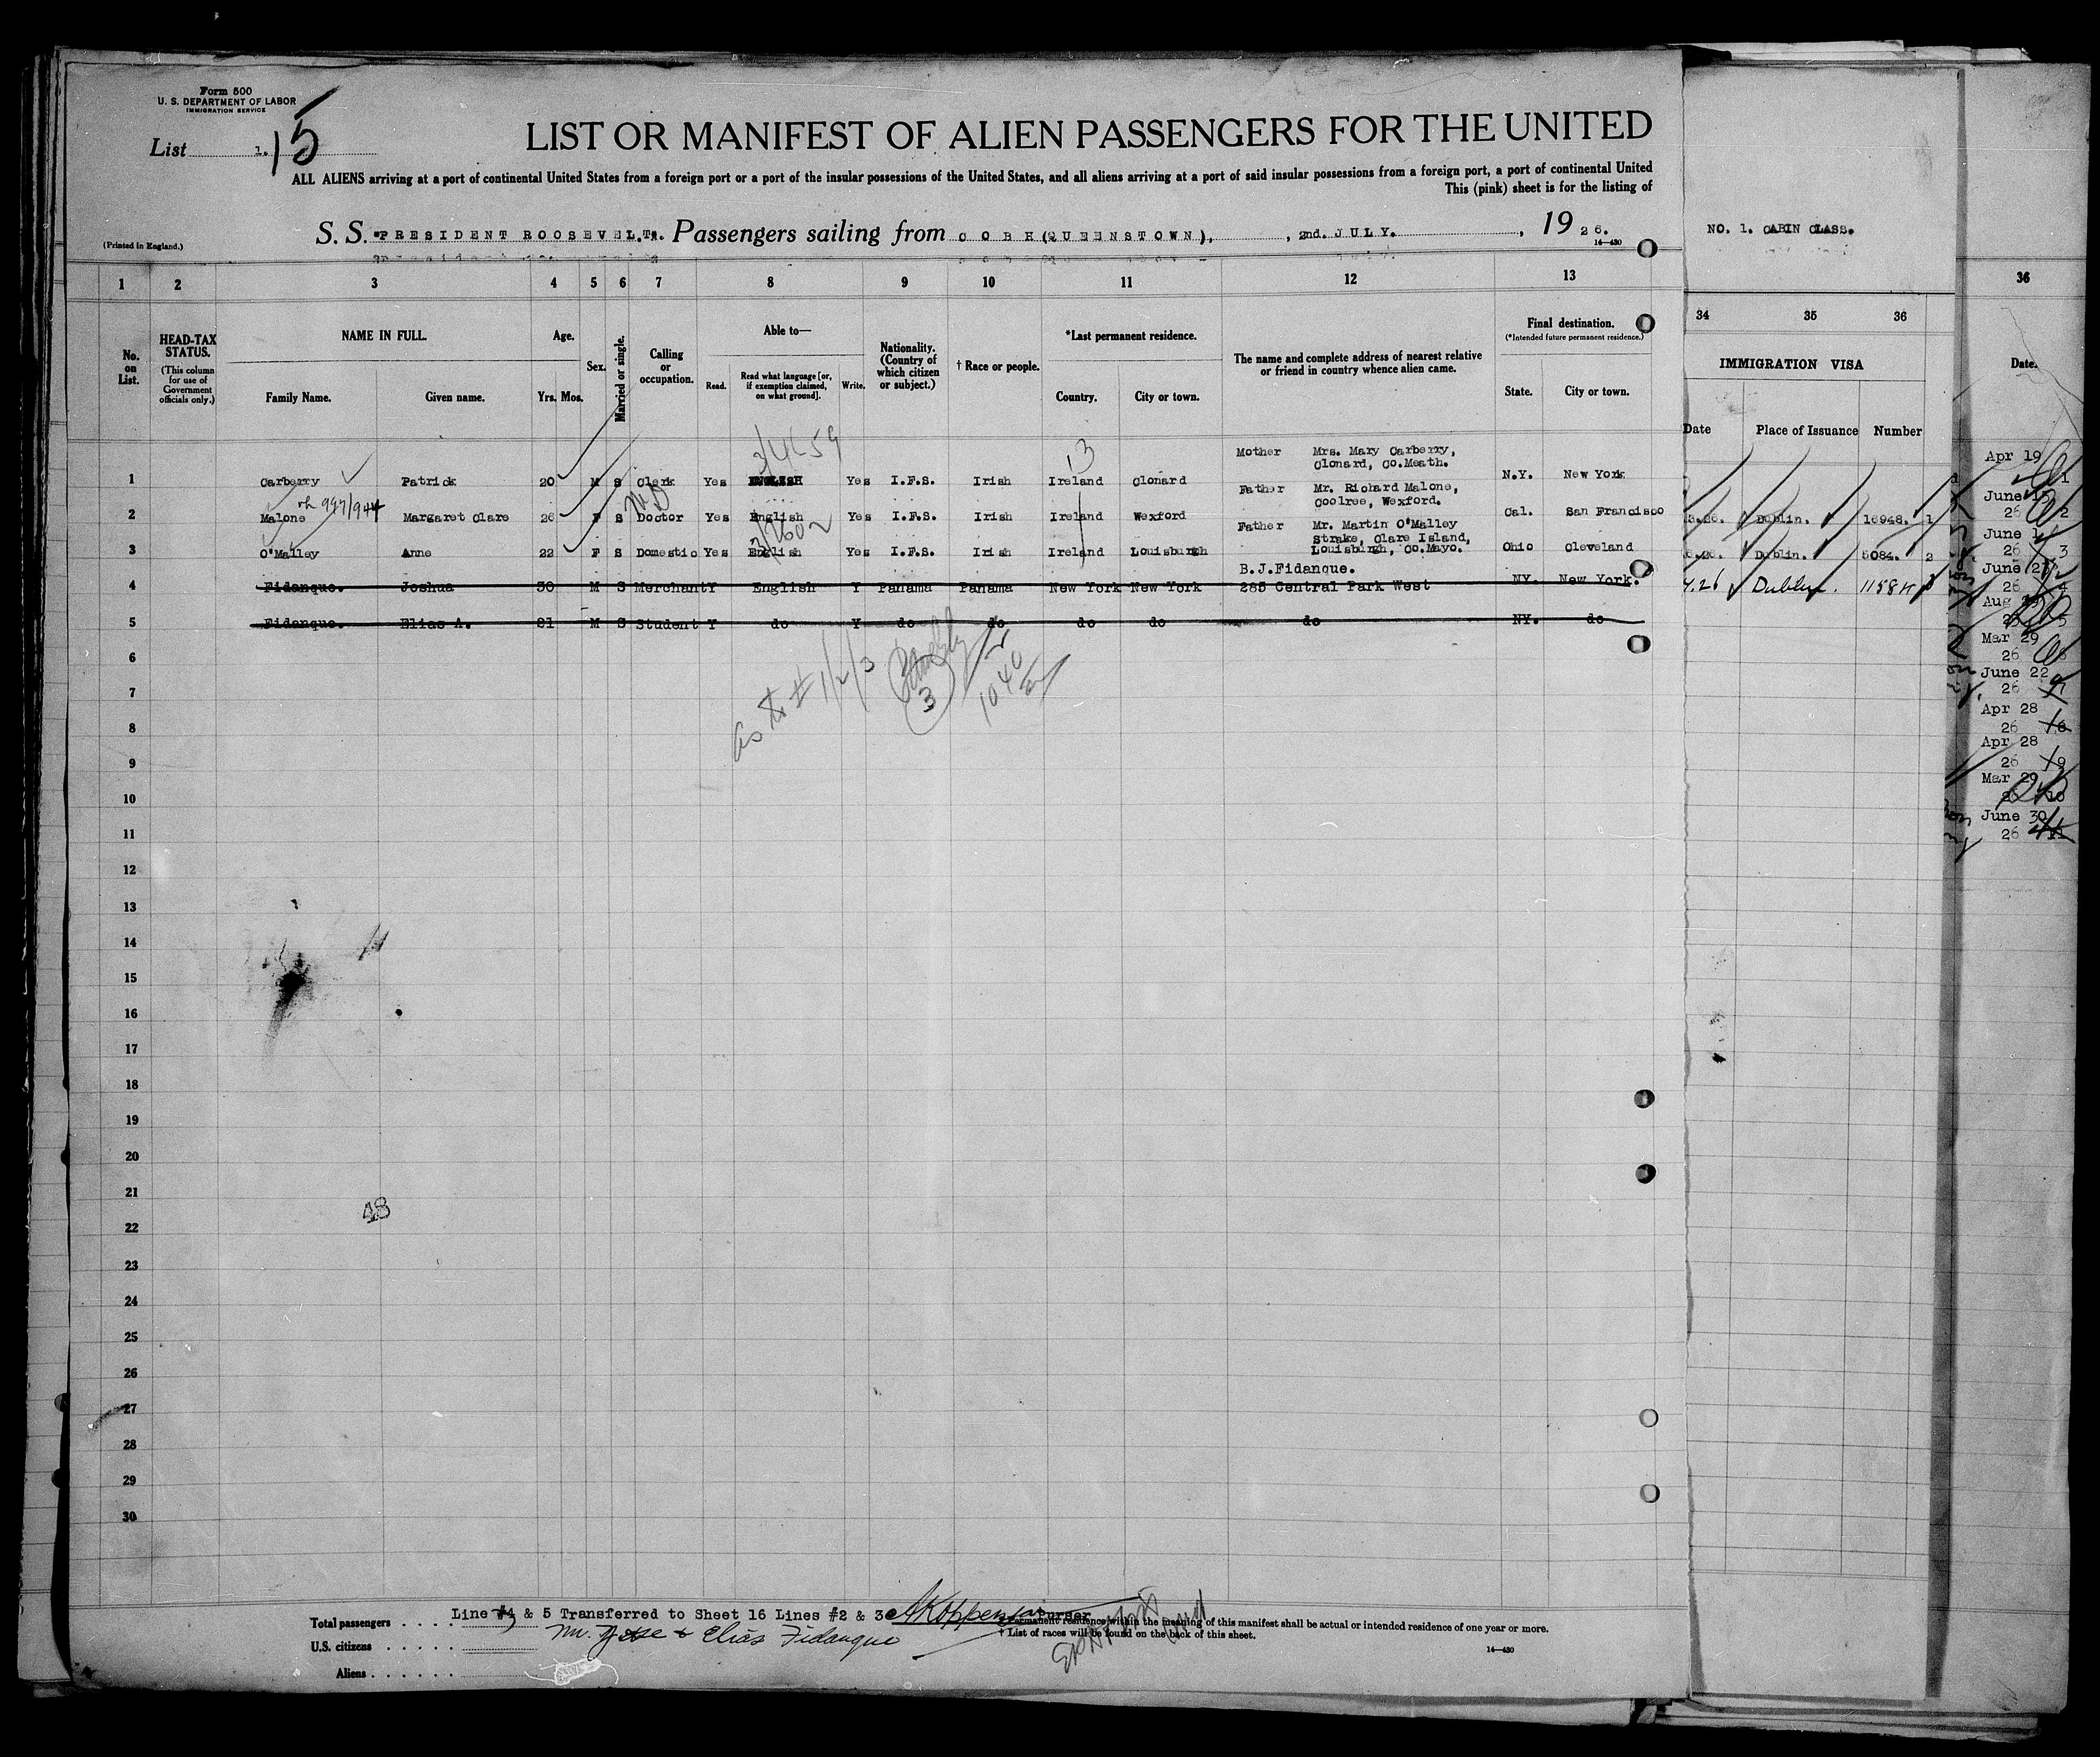 Form 500
U. S. DEPARTMENT OF LABOR
IMMIGRATION SERVICE
List 1. 15
LIST OR MANIFEST OF ALIEN PASSENGERS FOR THE UNITED
ALL ALIENS arriving at a port of continental United States from a foreign port or a port of the insular possessions of the United States, and all aliens arriving at a port of said insular possessions from a foreign port, a port of continental United
This (pink) sheet is for the listing of
(Printed in England.)
S. S. "PRESIDENT ROOSEVELT". Passengers sailing from COBH (QUEENSTOWN), , 2nd. JULY. , 19 26.
14—430
NO. 1. CABIN CLASS.
1 2 3 4 5 6 7 8 9 10 11 12 13
34 35 36
36
No. on List.
HEAD-TAX STATUS.
(This column for use of Government officials only.)
NAME IN FULL.
Family Name. Given name.
Age.
Yrs. Mos.
Sex.
Married or single.
Calling or occupation.
Able to—
Read. Read what language [or, if exemption claimed, on what ground]. Write.
Nationality. (Country of which citizen or subject.)
† Race or people.
*Last permanent residence.
Country. City or town.
The name and complete address of nearest relative or friend in country whence alien came.
Final destination.
(*Intended future permanent residence.)
State. City or town.
IMMIGRATION VISA
Date Place of Issuance Number
Date.
3/4659
13
1 Carberry Patrick 20 M S Clerk Yes ENGLISH Yes I.F.S. Irish Ireland Clonard Mother Mrs. Mary Carberry, Clonard, Co.Meath. N.Y. New York
997/944
2 Malone Margaret Clare 26 F S Doctor Yes English Yes I.F.S. Irish Ireland Wexford Father Mr. Richard Malone, Coolree, Wexford. Cal. San Francisco
Dublin. 16948. 1
3 O'Malley Anne 22 F S Domestic Yes English Yes I.F.S. Irish Ireland Louisburgh Father Mr. Martin O'Malley Strake, Clare Island, Louisburgh, Co.Mayo. Ohio Cleveland
Dublin. 5084. 2
4 Fidanque. Joshua 30 M S Merchant Y English Y Panama Panama New York New York B.J.Fidanque. 285 Central Park West NY. New York.
Dublin. 3
5 Fidanque. Elias A. 21 M S Student Y do Y do do do do do NY. do
6
7
8
9
10
11
12
13
14
15
16
17
18
19
20
21
48
22
23
24
25
26
27
28
29
30
3
1040
Apr 19
1
June 15
26 2
June 1
26 3
June 21
26 4
Aug
5
Mar 29
26
June 22
26
Apr 28
26
Apr 28
26 9
Mar 29
10
June 30
26
Total passengers . . . .
U.S. citizens . . . . . .
Aliens . . . . . .
Line #4 & 5 Transferred to Sheet 16 Lines #2 & 3 Purser
Elias Fidanque
*Permanent residence within the meaning of this manifest shall be actual or intended residence of one year or more.
† List of races will be found on the back of this sheet.
14—430